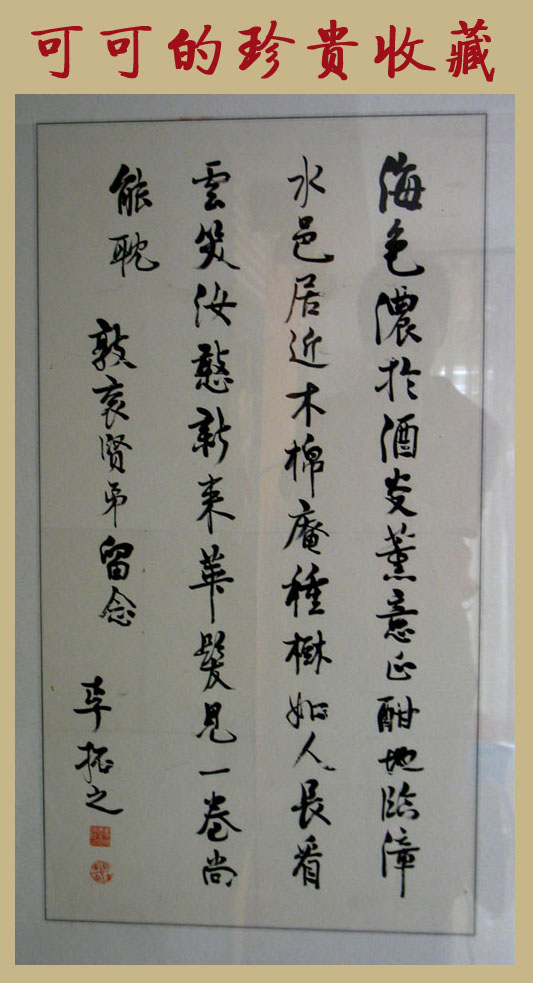 可可的珍贵收藏
海色濃於酒炎薰意正酣地臨漳
水邑居近木棉庵種樹如人長看
雲笑汝憨新来華髮見一卷尚
能耽 敦亥賢弟留念 李拓之